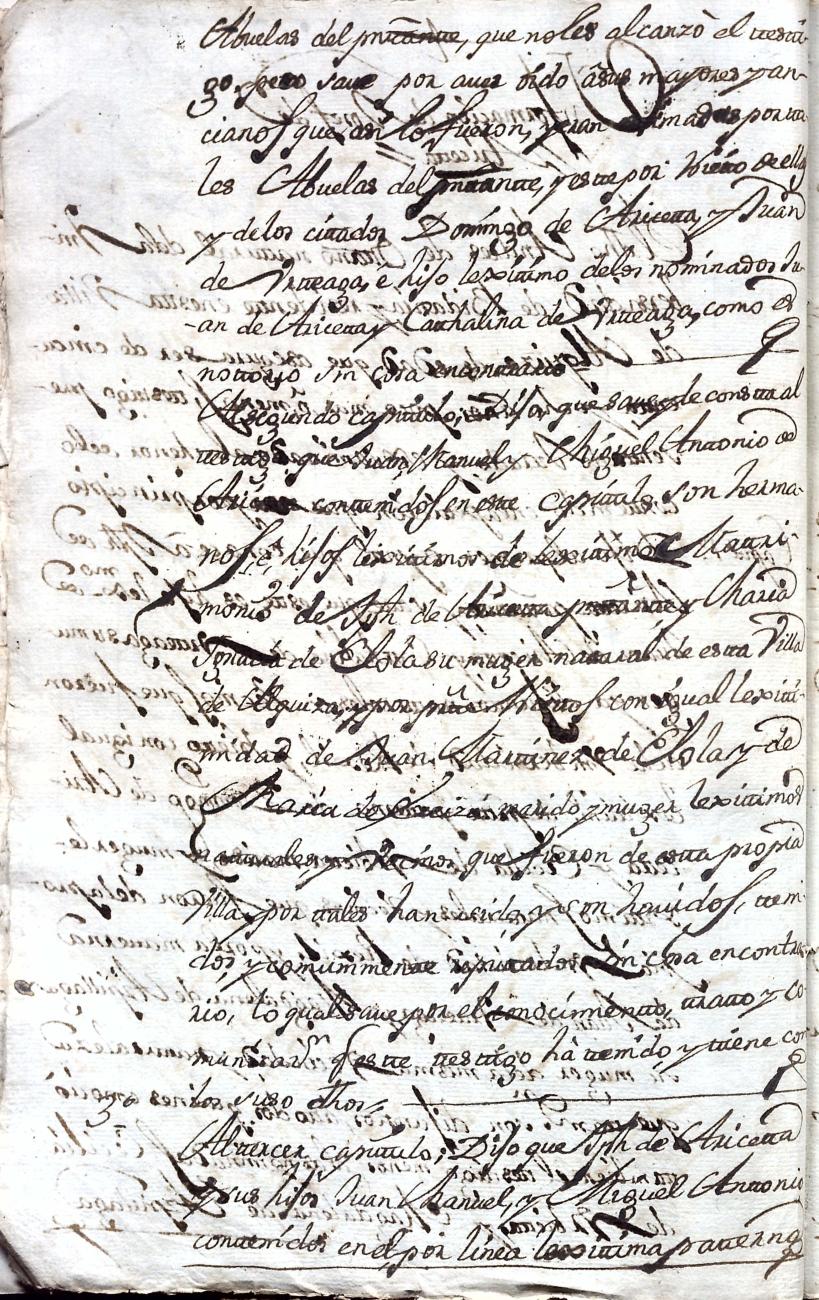 Abuelas del pntante, que no les alcanzò el testi-
go. pero save por aver oido a sus mayores y an-
cianos que asi lo fueron, y eran estimadas por ta-
les Abuelas del pntante, y este por Nieto de ellas
y de los citados Domingo de Aricetta, y Juan
de Urteaga, é hijo lexitimo de los nominados Ju-
an de Aricetta y Cathalina de Urteaga, como es
nottorio sin cosa encontrario
Al segundo capitulo, Dijo, que save y le consta al
testigo que Juan Manuel y Miguel Antonio de
Aricetta contenidos en este capitulo son herma-
nos, é hijos lexitimos de lexitimo Matri-
monio de Jph de Aricetta pntante y Maria
Ignacia de Elola su muger natural de esta Villa
de Alquiza, y por Nietos con igual lexiti-
midad de Juan Martinez de Elola y de
Maria de marido y muger lexitimos
naturales, y vecinos que fueron de esta propia
Villa, por tales han sido, y son havidos, teni-
dos, y comunmente reputados sin cosa encontra-
rio, lo qual save por el conocimiento, tratto y co-
municaon q este testigo hà tenido y tiene con
los suso dhos
Al tercer capitulo, Dijo que Jph de Aricetta
y sus hijos Juan Manuel, y Miguel Antonio
contenidos en el, por linea lexitima paterna